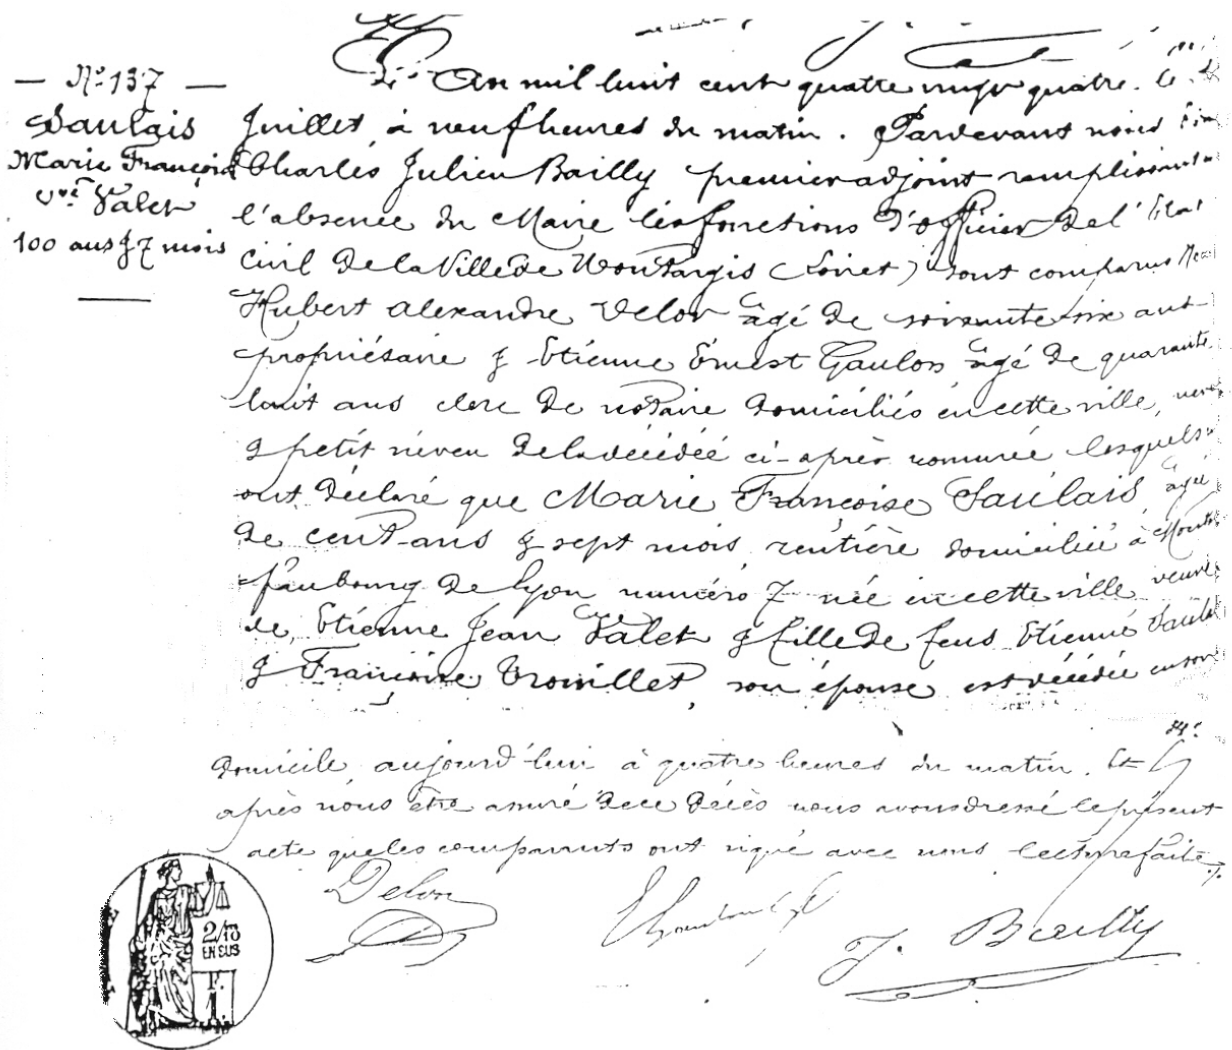 — N° 137 —
Saulais
Marie Françoise
Vve Valet
100 ans & 7 mois
L'An mil huit cent quatre vingt quatre, le
Juillet, à neuf heures du matin. Pardevant nous
Charles Julien Bailly premier adjoint remplissant
l'absence du Maire les fonctions d'officier de l'Etat
Civil de la Ville de Montargis (Loiret) sont comparus
Hubert Alexandre Delon âgé de soixante six ans
propriétaire & Etienne Ernest Gaulon âgé de quarante
huit ans clerc de notaire domiciliés en cette ville,
& petit neveu de la décédée ci-après nommée lesquels
ont déclaré que Marie Françoise Saulais, âgée
de cent ans & sept mois, rentière domiciliée à
faubourg de Lyon numéro 7 née en cette ville, veuve
de, Etienne Jean Valet & fille de feus Etienne
& Françoise Trouillet, son épouse est décédée en son
domicile, aujourd'hui à quatre heures du matin. Et
après nous être assuré de ce décès nous avons dressé le présent
acte que les comparants ont signé avec nous lecture faite.
Delon
J. Bailly
2/10
EN SUS